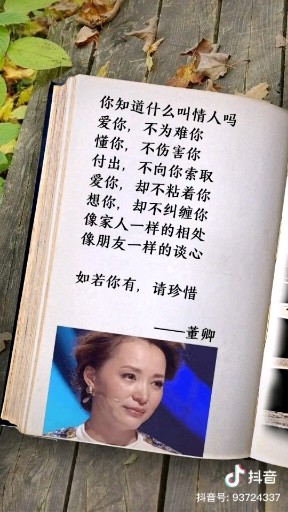 你知道什么叫情人吗
爱你，不为难你
懂你，不伤害你
付出，不向你索取
爱你，却不粘着你
想你，却不纠缠你
像家人一样的相处
像朋友一样的谈心
如若你有，请珍惜
——董卿
抖音
抖音号: 93724337